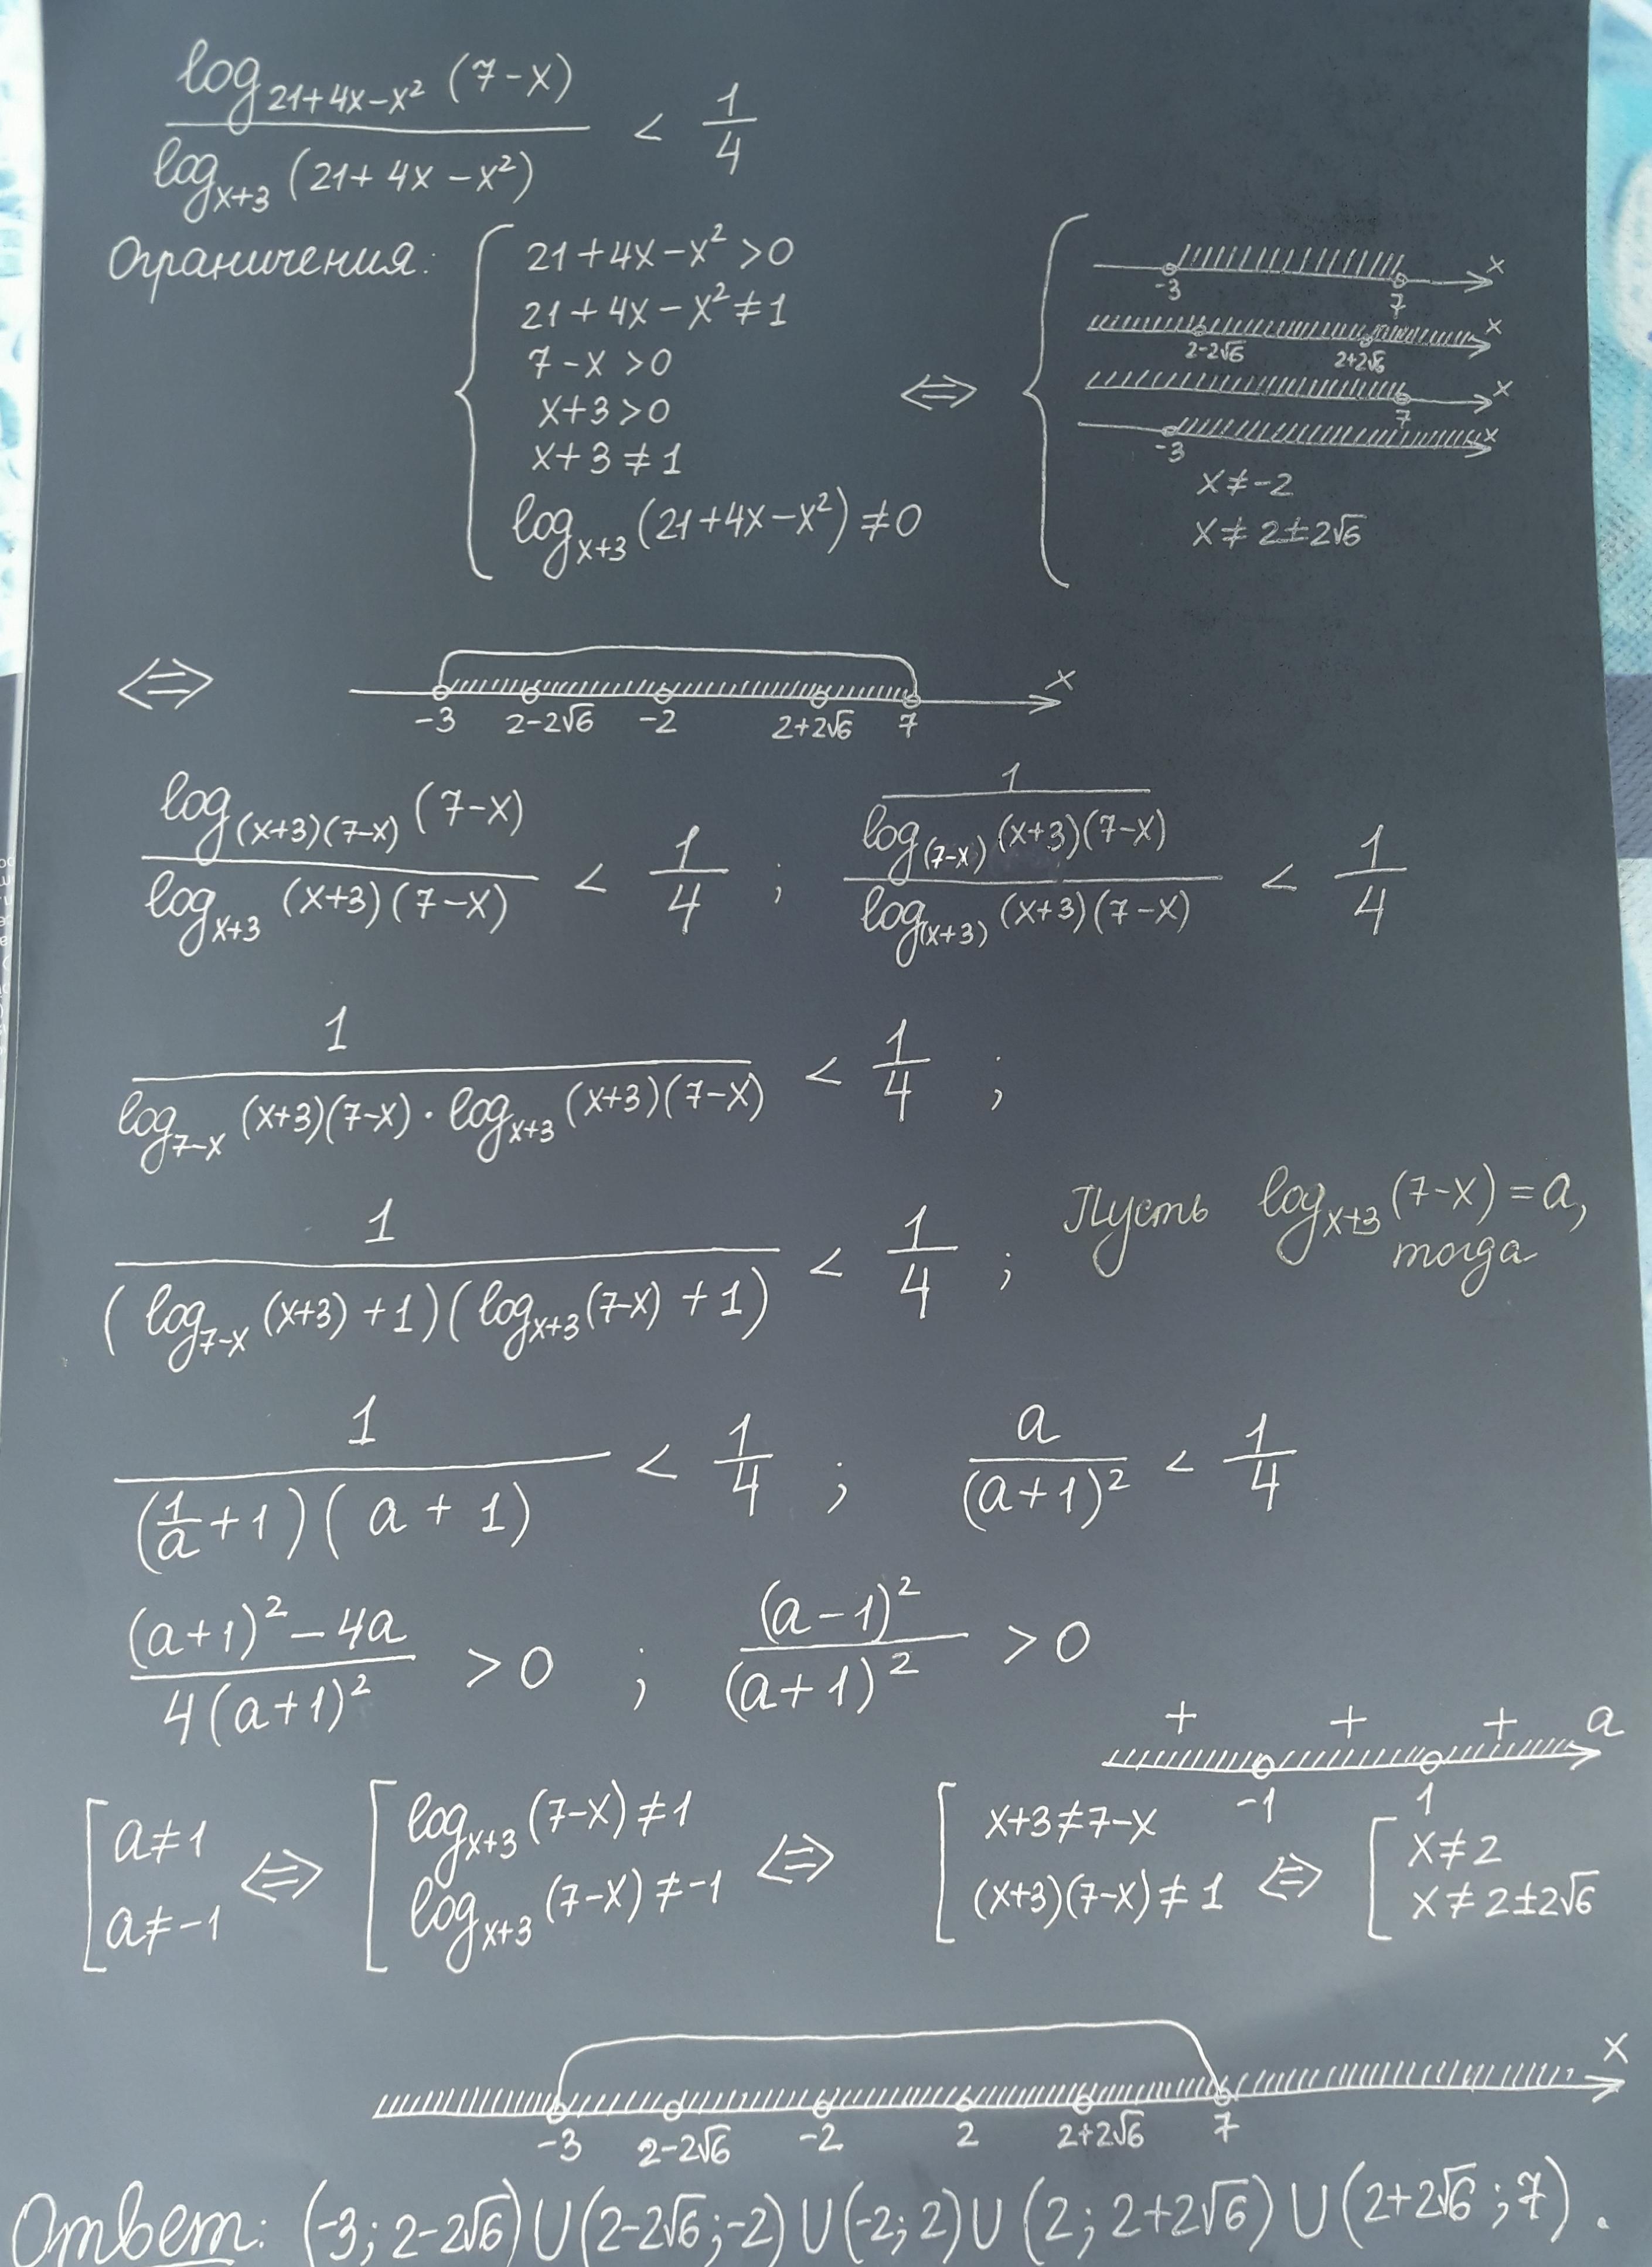 log_{21+4x-x²} (7-x) / log_{x+3} (21+4x-x²) < 1/4
Ограничения:
21+4x-x² >0
21+4x-x² ≠1
7-x >0
x+3>0
x+3≠1
log_{x+3} (21+4x-x²) ≠0
⇔
-3 7 x
2-2√6 2+2√6 x
7 x
-3 x
x≠-2
x≠2±2√6
⇔ -3 2-2√6 -2 2+2√6 7 x
log_{(x+3)(7-x)} (7-x) / log_{x+3} (x+3)(7-x) < 1/4 ; (1 / log_{(7-x)} (x+3)(7-x)) / log_{(x+3)} (x+3)(7-x) < 1/4
1 / (log_{7-x} (x+3)(7-x) · log_{x+3} (x+3)(7-x)) < 1/4 ;
1 / ((log_{7-x} (x+3)+1)(log_{x+3} (7-x)+1)) < 1/4 ; Пусть log_{x+3} (7-x)=a,
тогда
1 / ((1/a+1)(a+1)) < 1/4 ; a / (a+1)² < 1/4
((a+1)²-4a) / 4(a+1)² >0 ; (a-1)² / (a+1)² >0
+ + + a
-1 1
[ a≠1 ⇔ [ log_{x+3} (7-x)≠1 ⇔ [ x+3≠7-x ⇔ [ x≠2
a≠-1 log_{x+3} (7-x)≠-1 (x+3)(7-x)≠1 x≠2±2√6
-3 2-2√6 -2 2 2+2√6 7 x
Ответ: (-3; 2-2√6)∪(2-2√6;-2)∪(-2;2)∪(2; 2+2√6)∪(2+2√6;7).